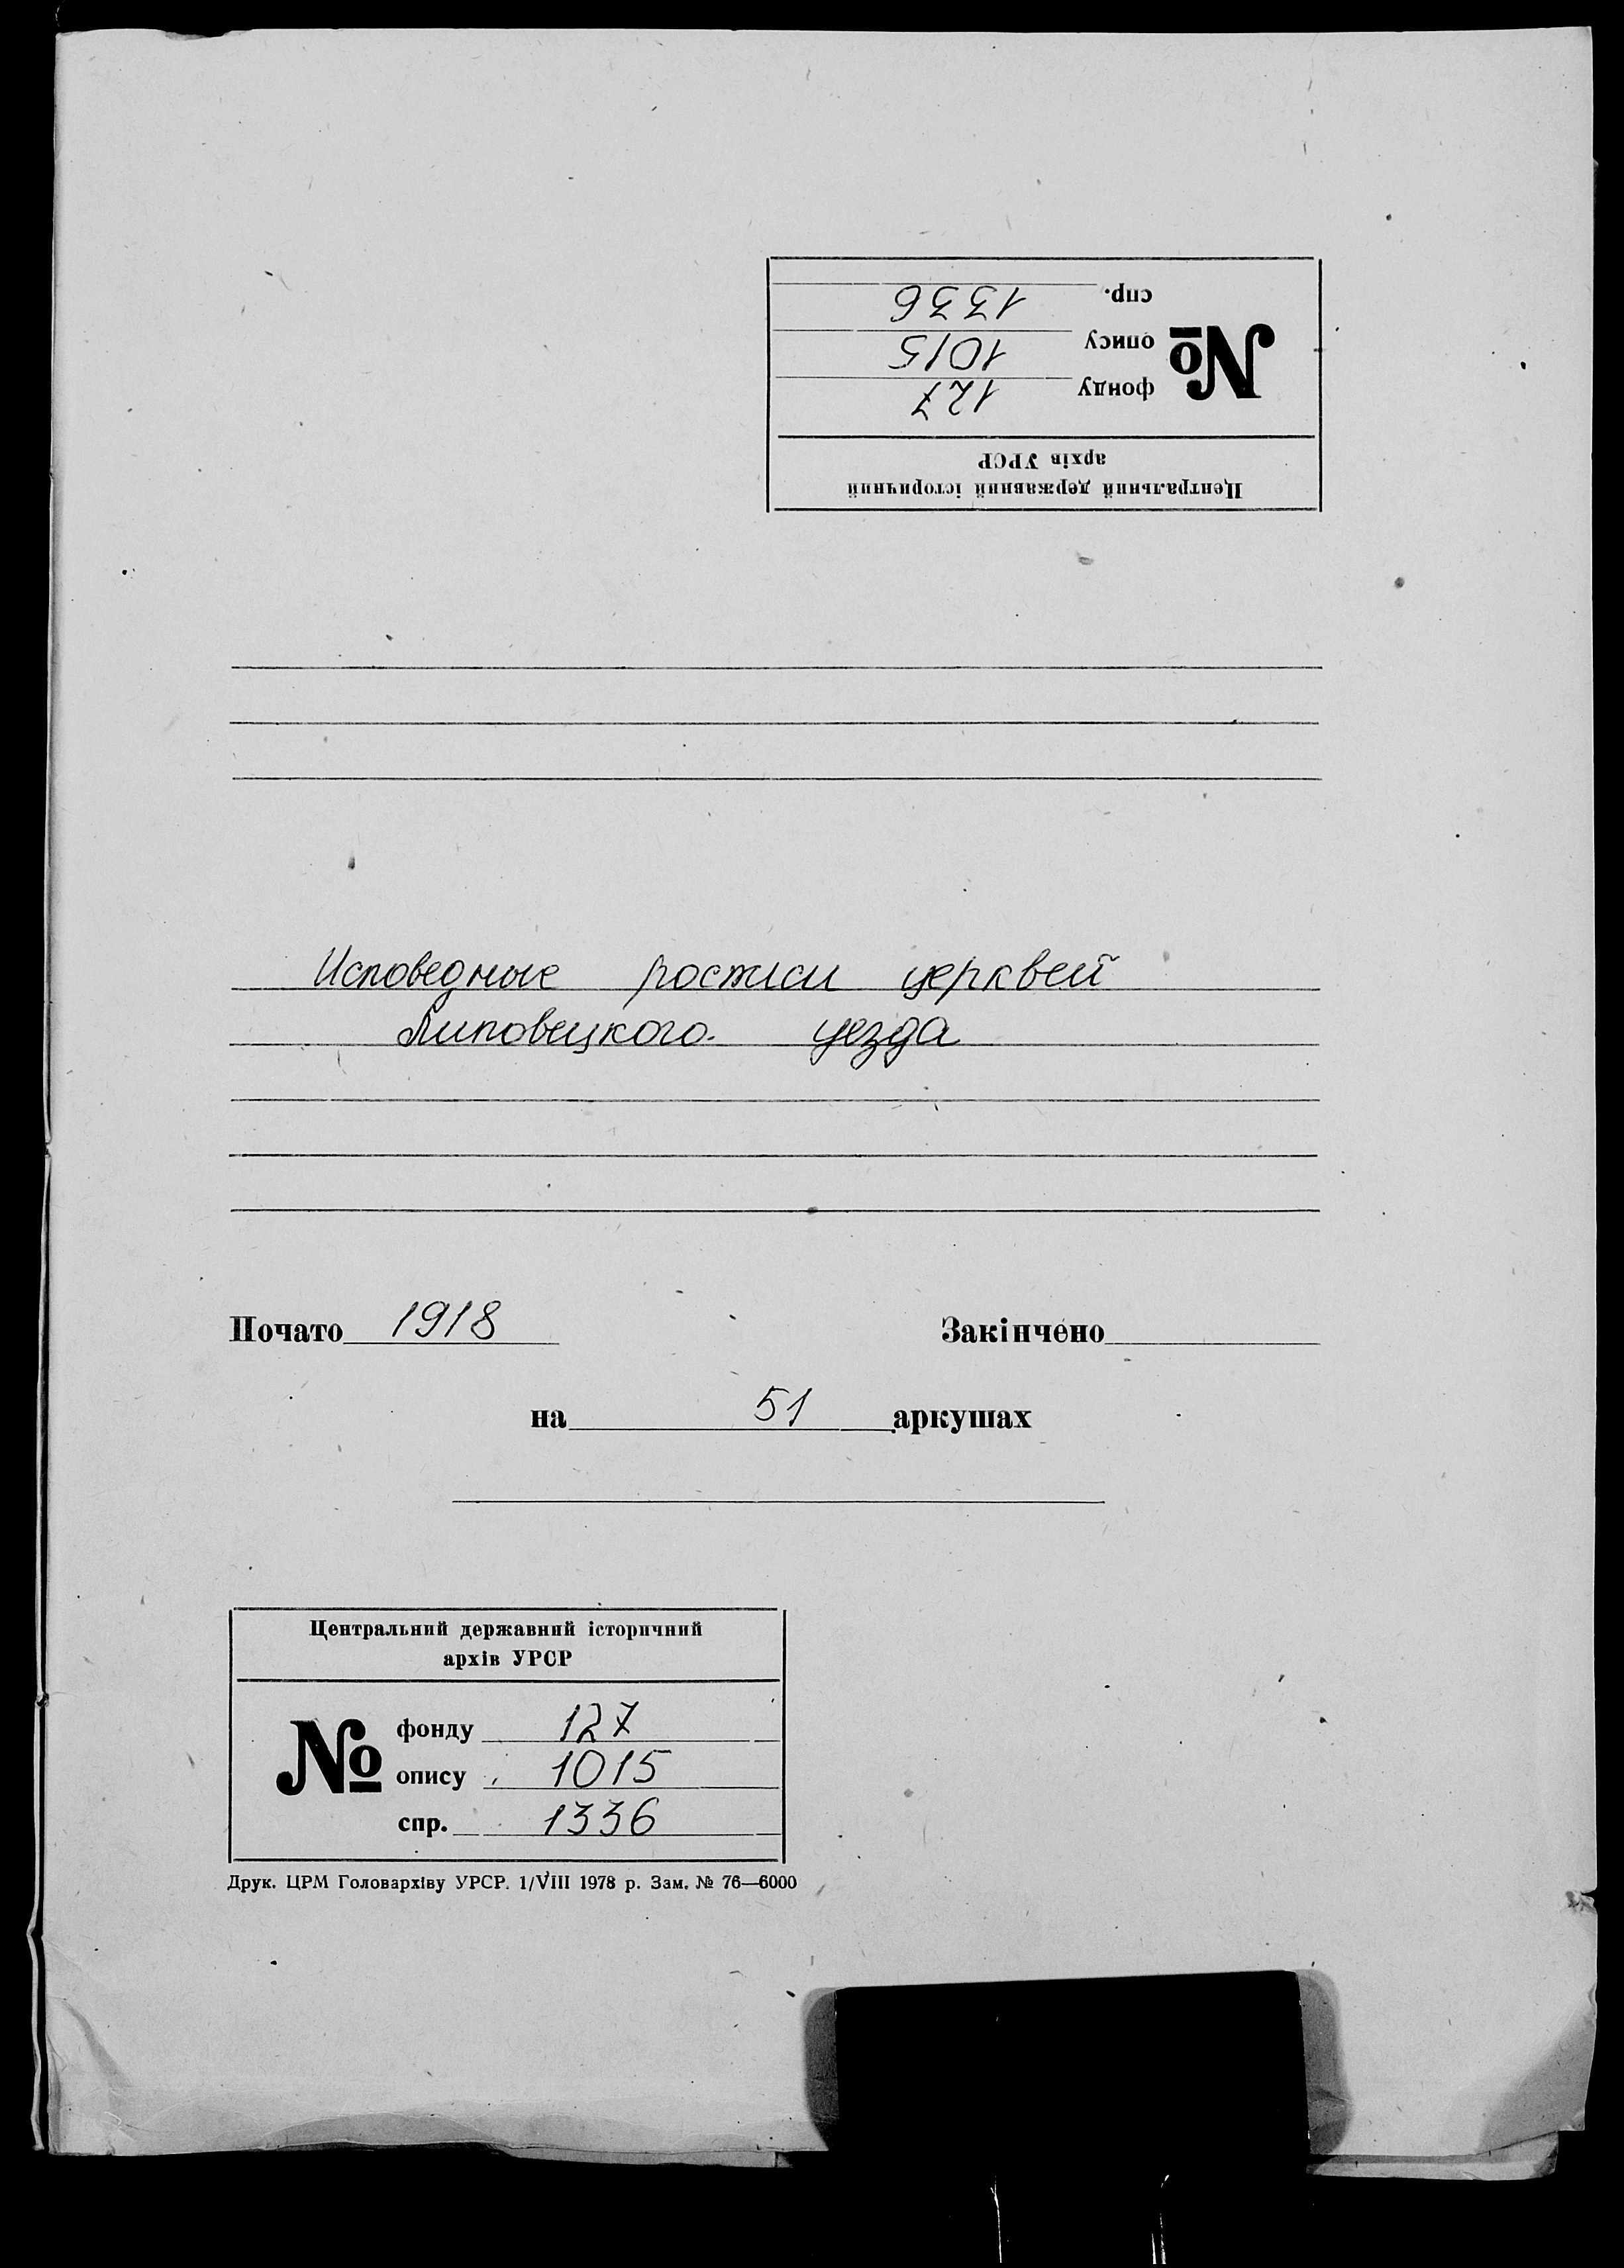 Центральний державний історичний
архів УРСР
№
фонду 127
опису 1015
спр. 1336
Исповедные росписи церквей
Липовецкого уезда
Почато 1918 Закінчено
на 51 аркушах
Центральний державний історичний
архів УРСР
№
фонду 127
опису 1015
спр. 1336
Друк. ЦРМ Головархіву УРСР. 1/VIII 1978 р. Зам. № 76—6000